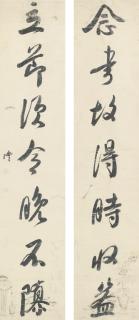 念書故得時收益
立節須令晚不隳